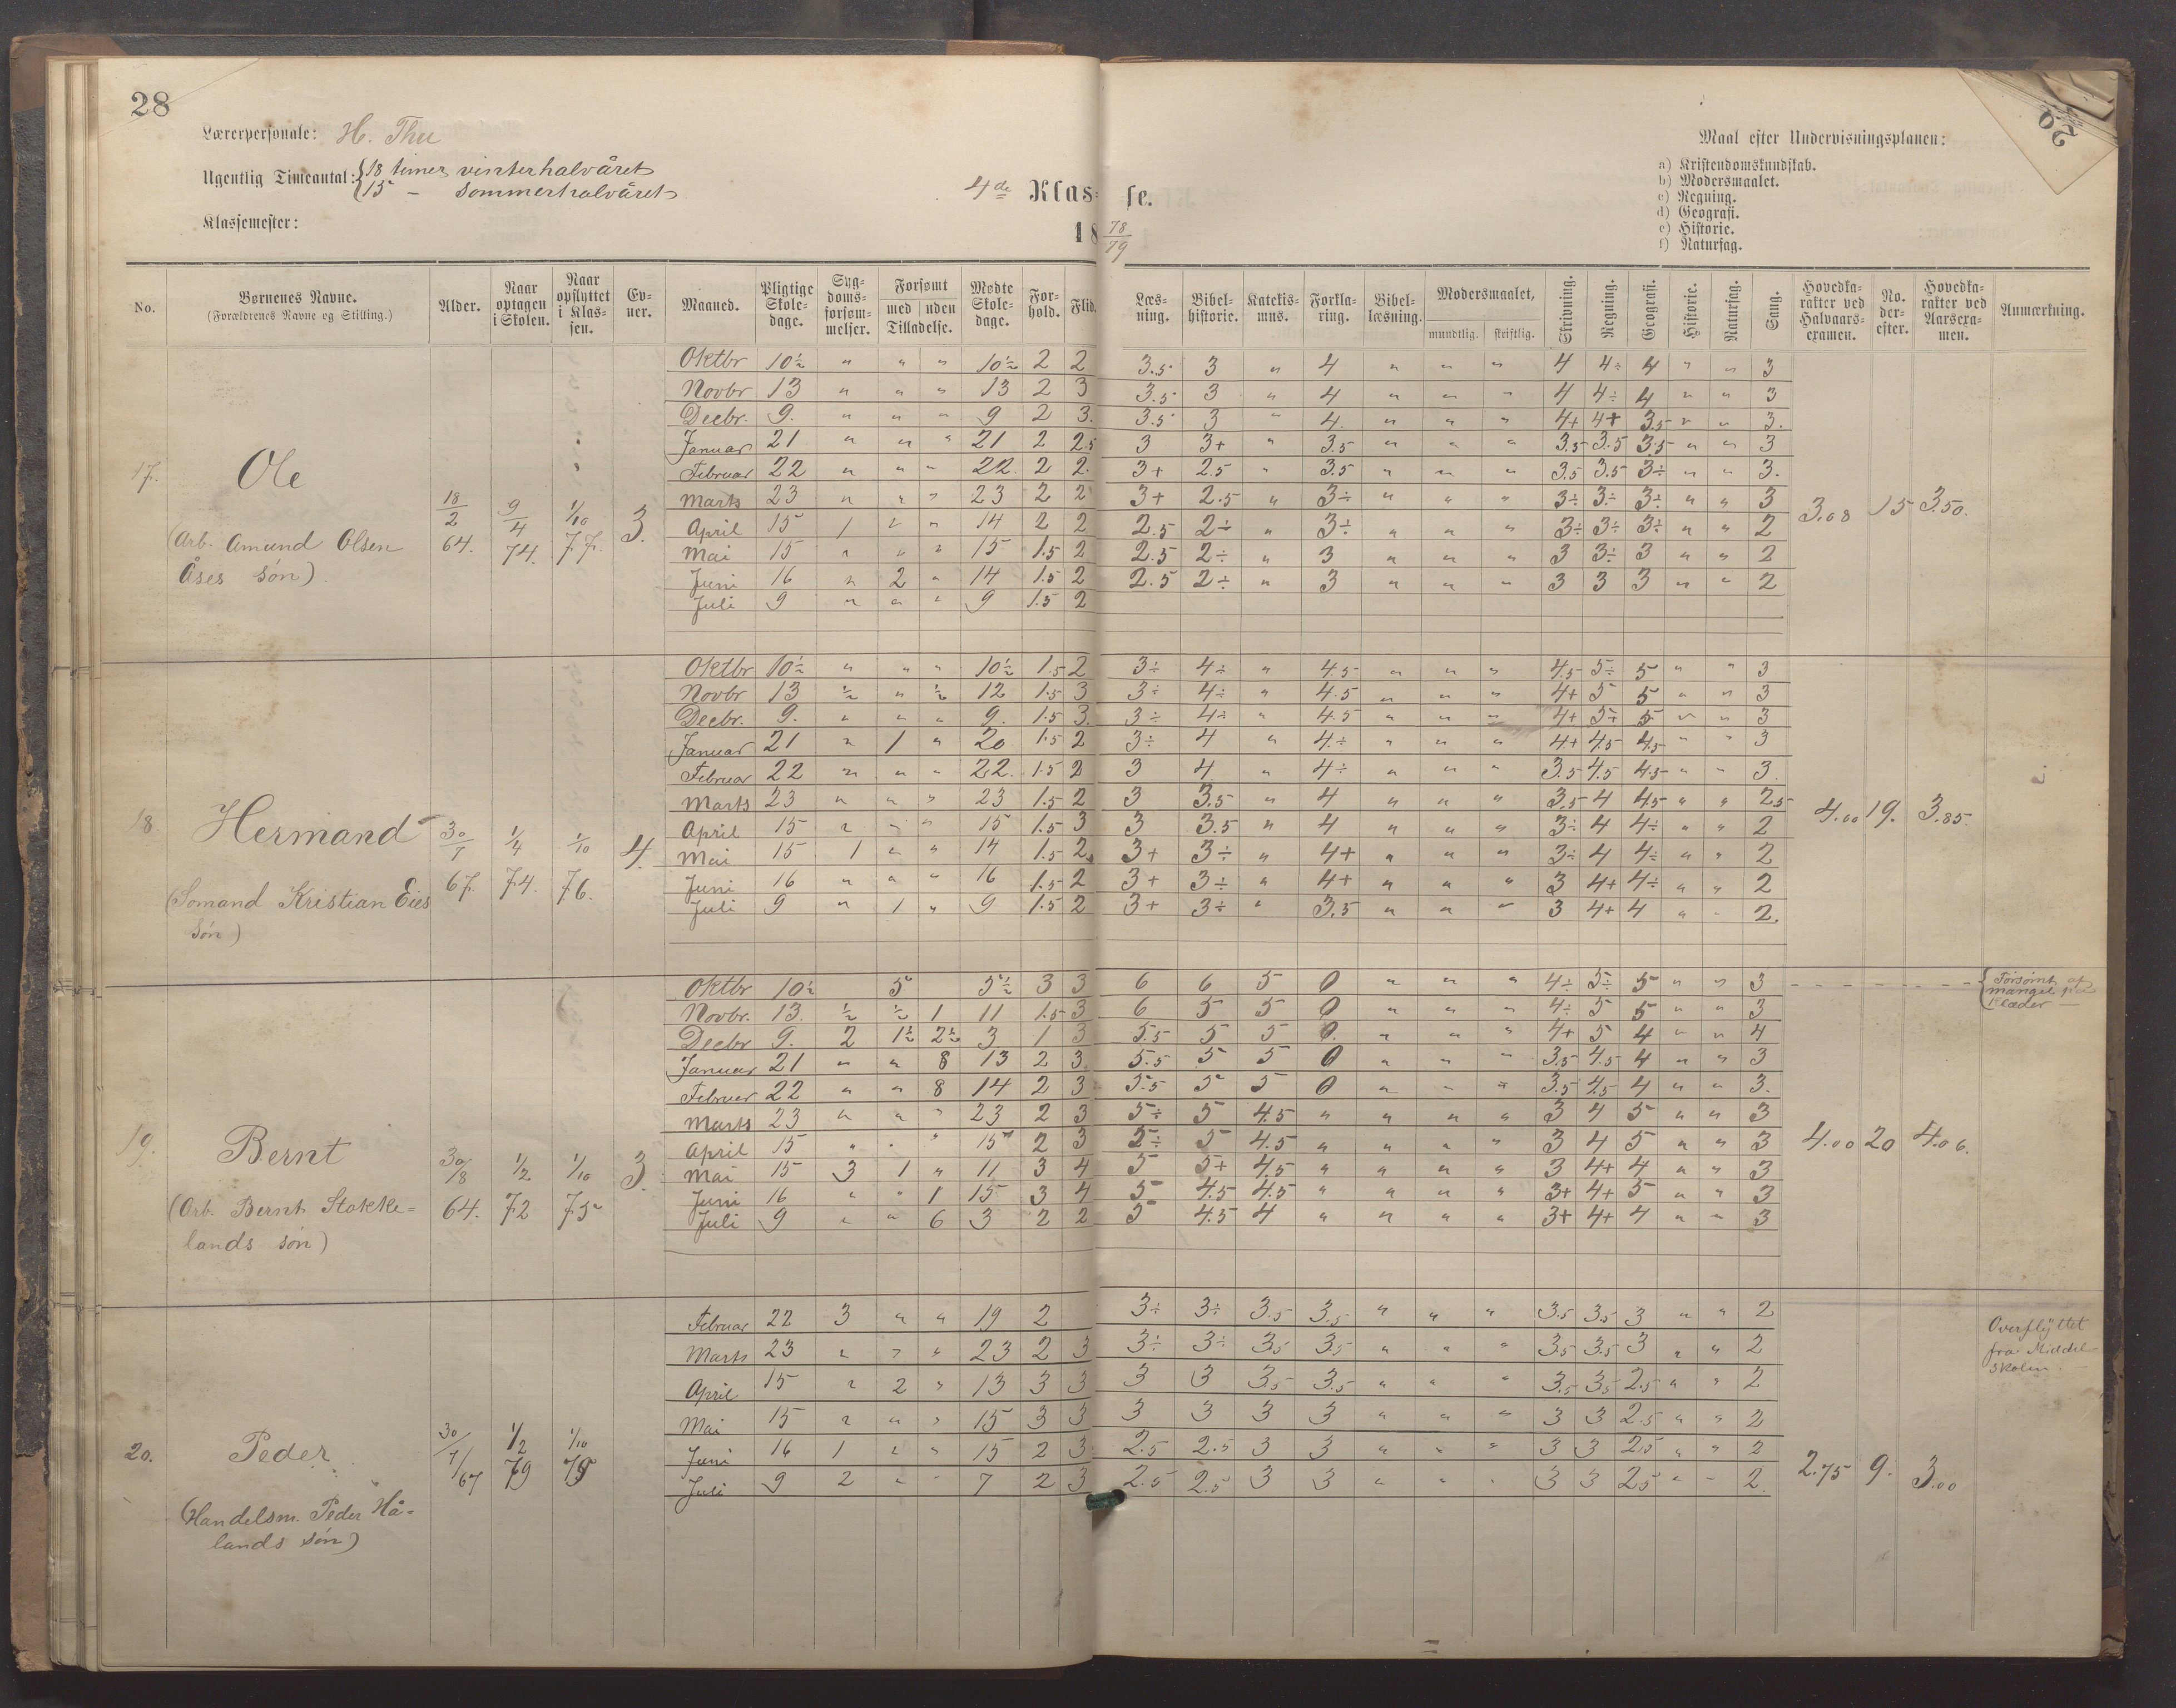 28
Lærerpersonale: H. Thu
Ugentlig Timeantal: {18 timer vinterhalvåret
{15 – sommerhalvåret
Klassemester:
4de Klasse.
18 78/79
Maal efter Undervisningsplanen:
a) Kristendomskundskab.
b) Modersmaalet.
c) Regning.
d) Geografi.
e) Historie.
f) Naturfag.
28
No. | Børnenes Navne. (Forældrenes Navne og Stilling.) | Alder. | Naar optagen i Skolen. | Naar opflyttet i Klassen. | Evner. | Maaned. | Pligtige Skoledage. | Sygdomsforsømmelser. | Forsømt med / uden Tilladelse. | Mødte Skoledage. | Forhold. | Flid. | Læsning. | Bibelhistorie. | Katekismus. | Forklaring. | Bibellæsning. | Modersmaalet, mundtlig. / skriftlig. | Skrivning. | Regning. | Geografi. | Historie. | Naturfag. | Sang. | Hovedkarakter ved Halvaarsexamen. | No. derefter. | Hovedkarakter ved Aarsexamen. | Anmærkning.
17. Ole
(Arb. Amund Olsen
Åses søn).
18/2 64. | 9/4 74. | 1/10 77. | 3.
Oktbr 10½ " " " 10½ 2 2 3.5 3 " 4 " " " 4 4÷ 4 " " 3
Novbr 13 " " " 13 2 3 3.5 3 " 4 " " " 4 4÷ 4 " " 3
Decbr. 9. " " " 9 2 3. 3.5 3 " 4. " " " 4+ 4+ 3.5 " " 3.
Januar 21 " " " 21 2 2.5 3 3+ " 3.5 " " " 3.5 3.5 3.5 " " 3
Februar 22 " " " 22. 2 2. 3+ 2.5 " 3.5 " " " 3.5 3.5 3÷ " " 3.
Marts 23 " " " 23 2 2 3+ 2.5 " 3÷ " " " 3÷ 3÷ 3÷ " " 3
April 15 1 " " 14 2 2 2.5 2÷ " 3÷ " " " 3÷ 3÷ 3÷ " " 2
Mai 15 " " " 15 1.5 2 2.5 2÷ " 3 " " " 3 3÷ 3 " " 2
Juni 16 " 2 " 14 1.5 2 2.5 2÷ " 3 " " " 3 3 3 " " 2
Juli 9 " " " 9 1.5 2
3.08 15 3.50.
18. Hermand
(Sømand Kristian Eies
søn)
67. | 1/4 74. | 1/10 76. | 4.
Oktbr 10½ " " " 10½ 1.5 2 3÷ 4÷ " 4.5 " " " 4.5 5÷ 5 " " 3
Novbr 13 ½ " ½ 12 1.5 3 3÷ 4÷ " 4.5 " " " 4+ 5 5 " " 3
Decbr. 9. " " " 9. 1.5 3. 3÷ 4÷ " 4.5 " " " 4+ 5+ 5 " " 3
Januar 21 " 1 " 20 1.5 2 3÷ 4 " 4÷ " " " 4+ 4.5 4.5 " " 3
Februar 22 " " " 22. 1.5 2 3 4 " 4÷ " " " 3.5 4.5 4.5 " " 3.
Marts 23 " " " 23 1.5 2 3 3.5 " 4 " " " 3.5 4 4.5 " " 2.5
April 15 " " " 15 1.5 3 3 3.5 " 4 " " " 3÷ 4 4÷ " " 2
Mai 15 1 " " 14 1.5 2 3+ 3÷ " 4+ " " " 3÷ 4 4÷ " " 2
Juni 16 " " " 16 1.5 2 3+ 3÷ " 4+ " " " 3 4+ 4÷ " " 2
Juli 9 " 1 " 9 1.5 2 3+ 3÷ " 3.5 " " " 3 4+ 4 " " 2.
4.00 19. 3.85.
19. Bernt
(Arb. Bernt Stokke=
lands søn)
30/8 64. | 1/2 72 | 1/10 75 | 3.
Oktbr 10½ 5 5½ 3 3 6 6 5 0 " " " 4÷ 5÷ 5 " " 3
Novbr. 13. ½ ½ 1 11 1.5 3 6 5 5 0 " " " 4÷ 5 5 " " 3
Decbr 9. 2 1½ 2½ 3 1 3 5.5 5 5 0. " " " 4+ 5 4 " " 4
Januar 21 " " 8 13 2 3. 5.5 5 5 0 " " " 3.5 4.5 4 " " 3
Februar 22 " " 8 14 2 3 5.5 5 5 0 " " " 3.5 4.5 4 " " 3.
Marts 23 " " " 23 2 3 5÷ 5 4.5 " " " " 3 4 5 " " 3
April 15 " " " 15 2 3 5÷ 5 4.5 " " " " 3 4 5 " " 3
Mai 15 3 1 " 11 3 4 5 5+ 4.5 " " " " 3 4+ 4 " " 3
Juni 16 " " 1 15 3 4 5 4.5 4.5 " " " " 3+ 4+ 5 " " 3
Juli 9 " " 6 3 2 2 5 4.5 4 " " " " 3+ 4+ 4 " " 3
4.00 20 4.06.
{Forsømt af
mangel på
klæder —
20. Peder
(Handelsm. Peder Hå-
lands søn)
67 | 1/2 79 | 1/10
Februar 22 3 " " 19 2 3÷ 3÷ 3.5 3.5 " " " 3.5 3.5 3 " " 2
Marts 23 " " " 23 2 3 3÷ 3÷ 3.5 3.5 " " " 3.5 3.5 3 " " 2
April 15 " 2 " 13 3 3 3 3 3.5 3.5 " " " 3.5 3.5 2.5 " " 2
Mai 15 " " " 15 3 3 3 3 3 3 " " " 3 3 2.5 " " 2
Juni 16 1 " " 15 2 3 2.5 2.5 3 3 " " " 3 3 2.5 " " 2
Juli 9 2 " " 7 2 3 2.5 2.5 3 3 " " " 3 3 2.5 " " 2.
2.75 9. 3.00
Overflyttet
fra Middel-
skolen. —